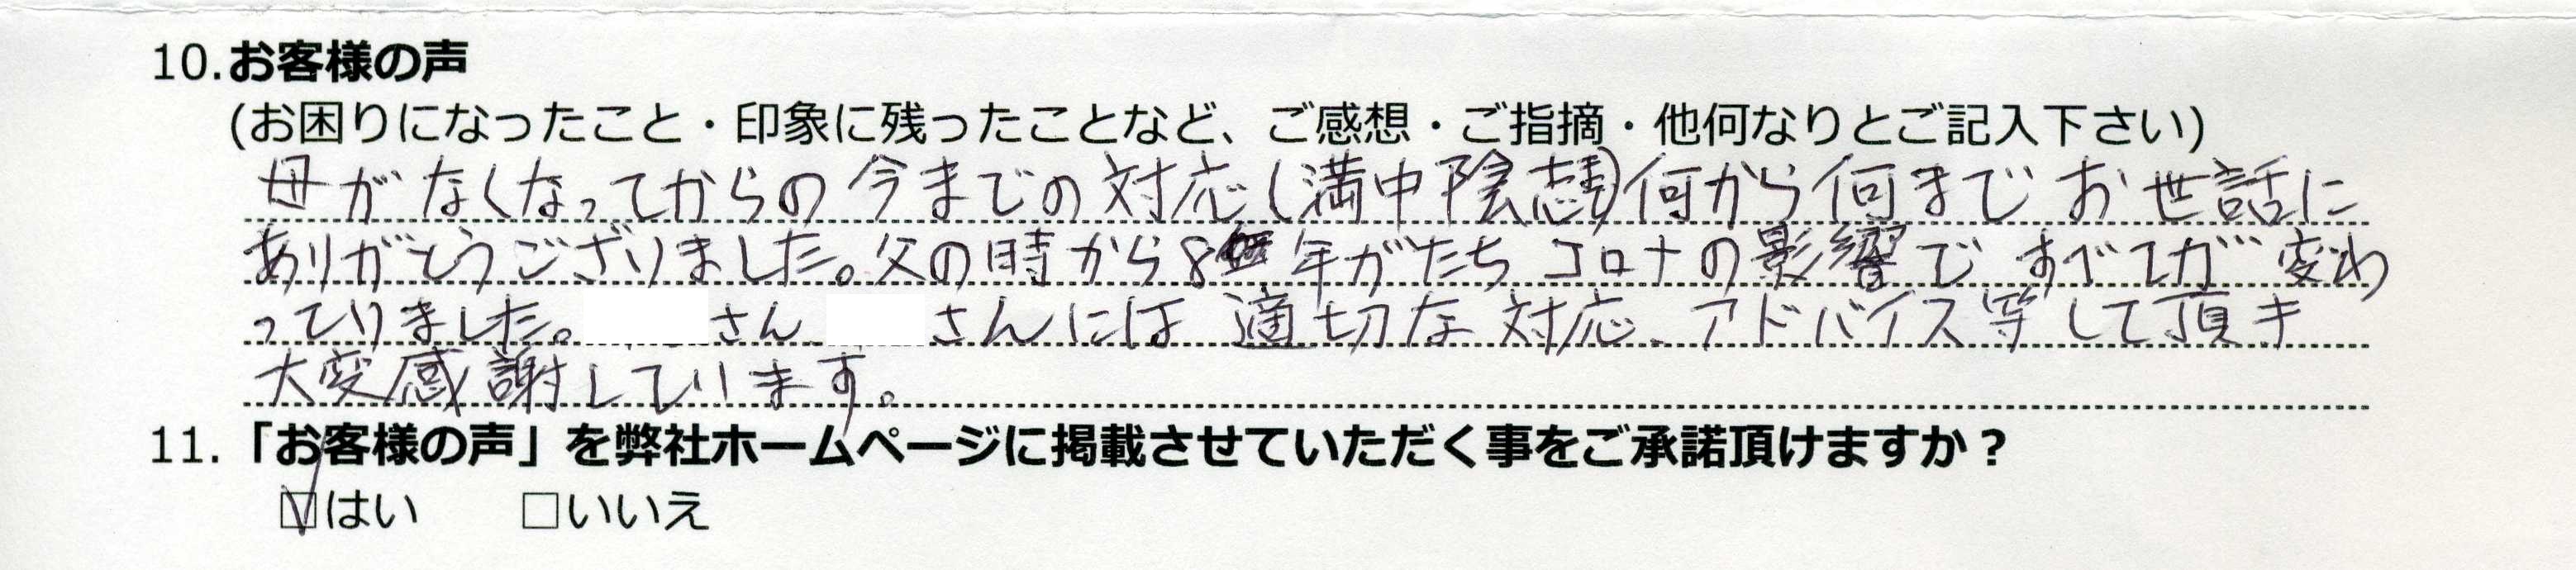 10.お客様の声
(お困りになったこと・印象に残ったことなど、ご感想・ご指摘・他何なりとご記入下さい)
母がなくなってからの今までの対応(満中陰志)何から何までお世話に
ありがとうございました。父の時から8年がたちコロナの影響ですべてが変わ
っていました。さん さんには適切な対応、アドバイス等して頂き
大変感謝しています。
11.「お客様の声」を弊社ホームページに掲載させていただく事をご承諾頂けますか？
☑はい □いいえ